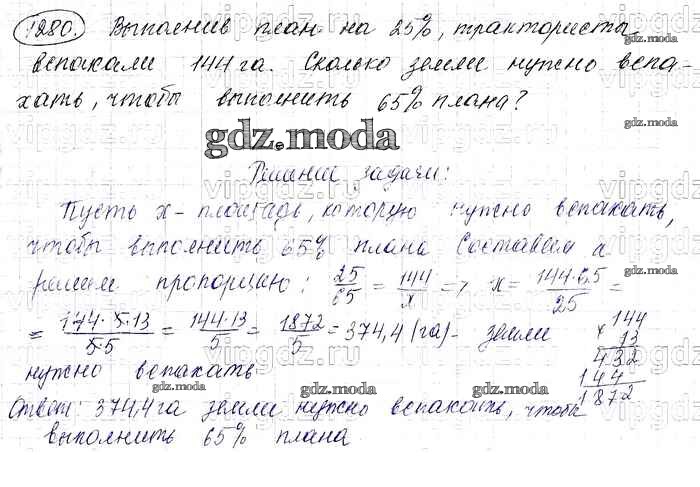 1280. Выполнив план на 25%, трактористы
вспахали 144 га. Сколько земли нужно вспа-
хать, чтобы выполнить 65% плана?
gdz.moda
Решение задачи:
Пусть x - площадь, которую нужно вспахать,
чтобы выполнить 65% плана Составим и
решим пропорцию: 25/65 = 144/x => x = 144·65/25 =
= 144·5·13/5·5 = 144·13/5 = 1872/5 = 374,4 (га) - земли
нужно вспахать
144
× 13
432
144
1872
Ответ: 374,4 га земли нужно вспахать, чтобы
выполнить 65% плана